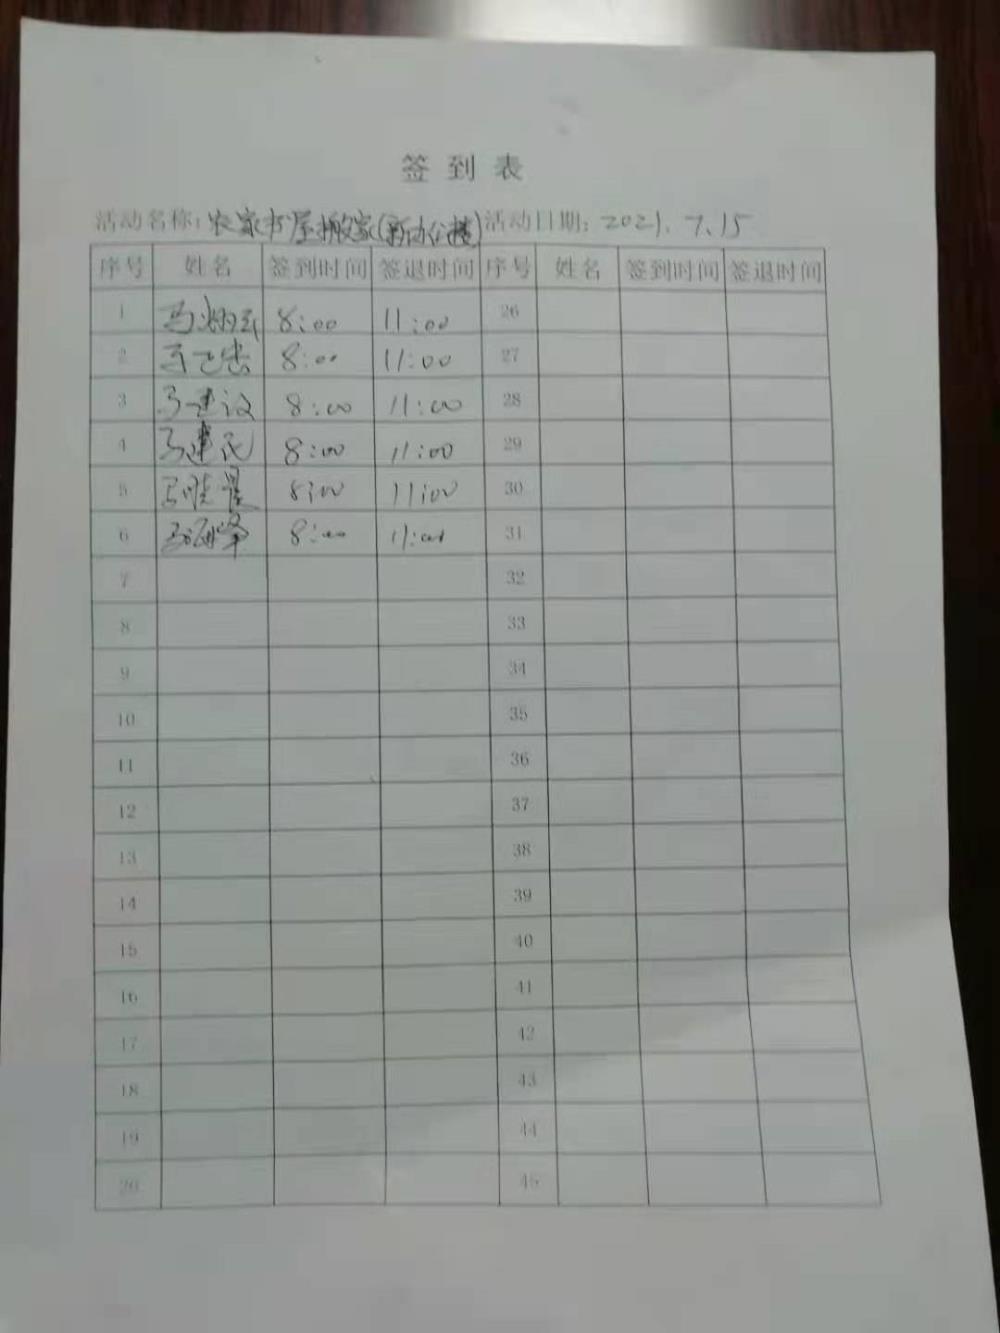 签到表
活动名称:农家书屋搬家(新办公楼) 活动日期:2021.7.15
序号 姓名 签到时间 签退时间 序号 姓名 签到时间 签退时间
1 8:00 11:00 26
2 8:00 11:00 27
3 马建设 8:00 11:00 28
4 马建民 8:00 11:00 29
5 8:00 11:00 30
6 马海峰 8:00 11:00 31
7 32
8 33
9 34
10 35
11 36
12 37
13 38
14 39
15 40
16 41
17 42
18 43
19 44
20 45